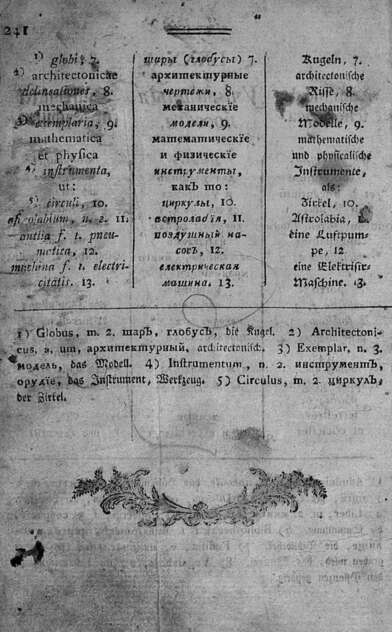 241
1) globi, 7. шары (глобусы) 7. Kugeln, 7.
2) architectonicae архитектурные architectonische
delineationes, 8. чертежи, 8. Risse, 8.
mechanica механическїе mechanische
3) exemplaria, 9. модели, 9. Modelle, 9.
mathematica математическїе mathematische
et physica и физическїе und physicalische
4) instrumenta, инструменты, Instrumente,
ut: какъ то: als:
5) circuli, 10. циркулы, 10. Zirkel, 10.
astrolabium, n. 2. 11. астролабїя, 11. Astrolabia, 11.
antlia f. 1. pneu- воздушный на- eine Luftpum-
matica, 12. сосъ, 12. pe, 12
machina f. 1. electri- електрическая eine Elektrisir-
citatis. 13. машина. 13. Maschine. 13.
1) Globus, m. 2. шаръ, глобусъ, die Kugel. 2) Architectoni-
cus, a, um, архитектурный, architectonisch. 3) Exemplar, n. 3.
модель, das Modell. 4) Instrumentum, n. 2. инструментъ,
орудїе, das Instrument, Werkzeug. 5) Circulus, m. 2. циркулъ,
der Zirkel.